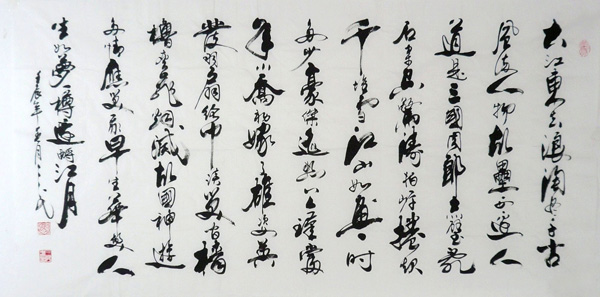 大江東去浪淘盡千古
風流人物故壘西邊人
道是三國周郎赤壁亂
石穿空驚濤拍岸捲起
千堆雪江山如畫一時
多少豪傑遙想公瑾當
年小喬初嫁了雄姿英
發羽扇綸巾談笑間檣
櫓灰飛煙滅故國神遊
多情應笑我早生華髮人
生如夢一樽還酹江月
壬辰年